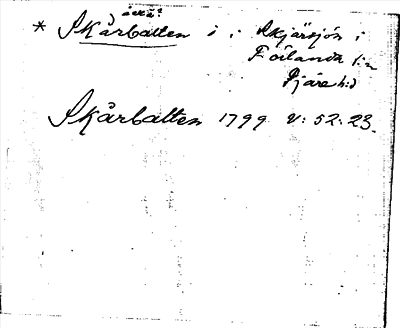 äckä?
* Skårbatten i : Skjärsjön i
Förlanda s:n
Fjäre h:d
Skårbatten 1799 V: 52: 23.